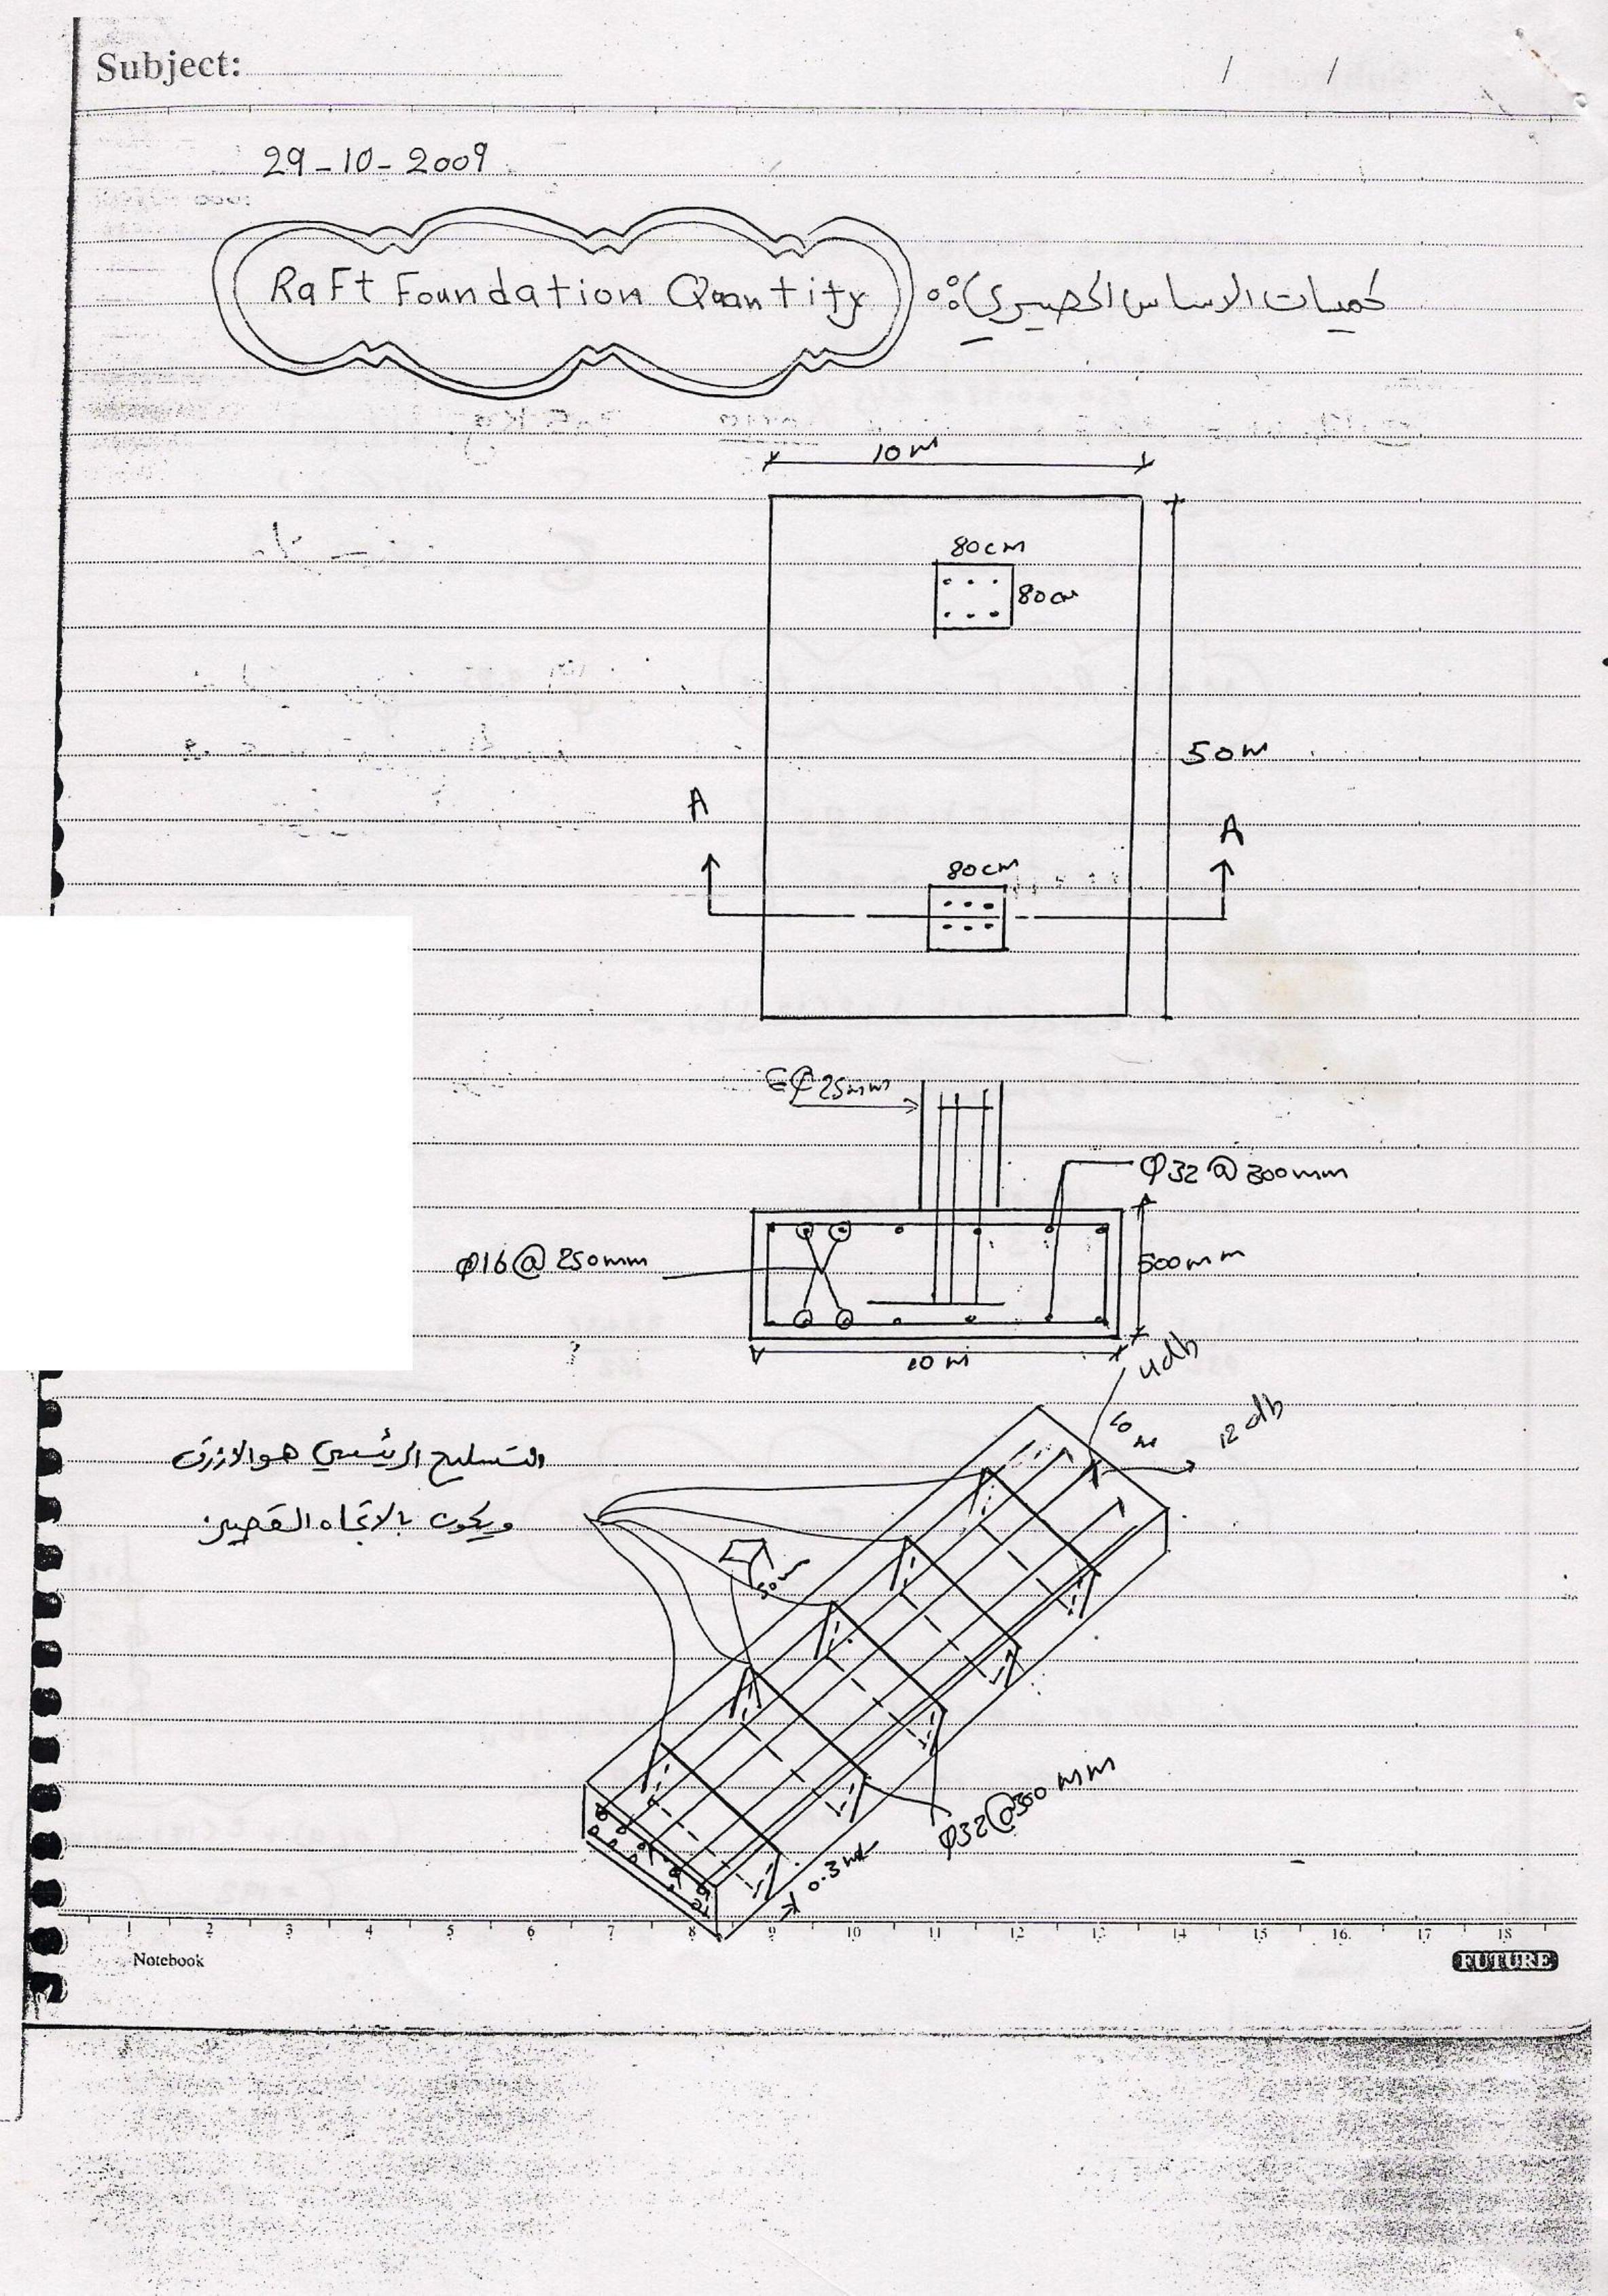 Subject:
/ /
29-10-2009
Raft Foundation Quantity كميات الاساس الحصيري:
10m
80cm
80cm
50m
A
A
80cm
6φ25mm
φ32@300mm
φ16@250mm
500mm
10m
4db
10m
12db
التسليح الرئيسي هو الازرق
ويكون بالاتجاه القصير.
50m
φ32@300mm
0.3m
1 2 3 4 5 6 7 8 9 10 11 12 13 14 15 16 17 18
Notebook
FUTURE